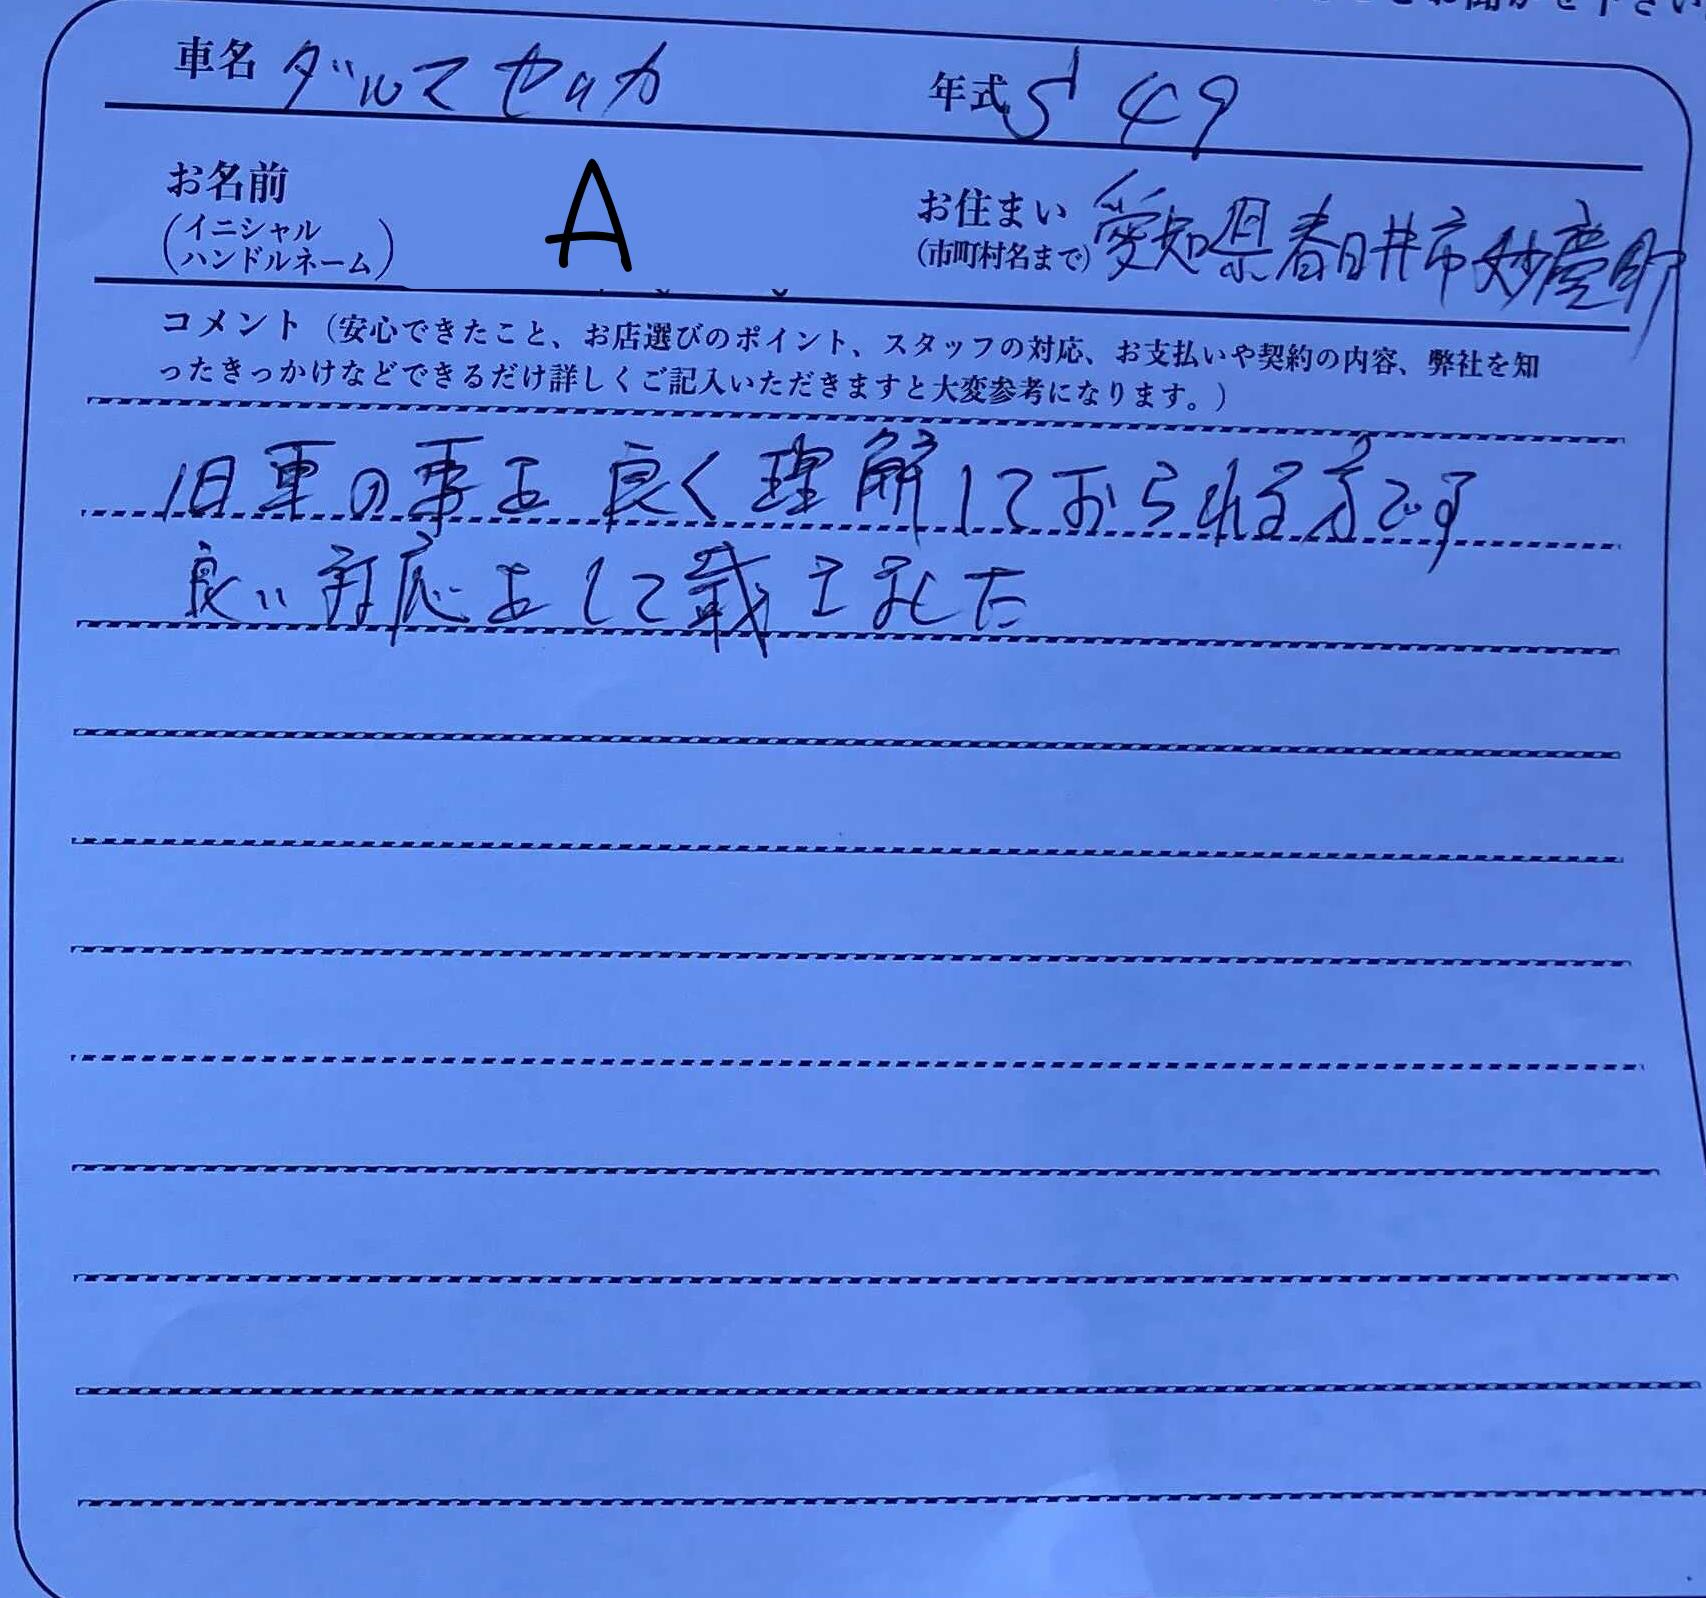 お聞かせ下さい
車名 ダルマセリカ 年式 S49
お名前 A お住まい 愛知県春日井市妙慶町
(イニシャル
ハンドルネーム) (市町村名まで)
コメント(安心できたこと、お店選びのポイント、スタッフの対応、お支払いや契約の内容、弊社を知
ったきっかけなどできるだけ詳しくご記入いただきますと大変参考になります。)
旧車の事を良く理解しておられる方です
良い対応をして戴きました